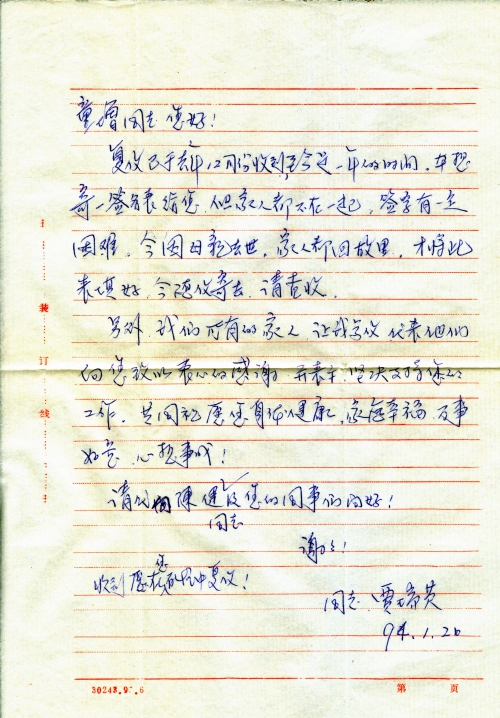 童增同志 您好！
复信已于去年12月份收到至今是一年的时间，早想
寄一签名表给您，但家人都不在一起，签字有一定
困难，今因母亲去世，家人都回故里，才将此
表填好，今随信寄去，请查收。
另外，我们所有的家人 让我写信代表他们
向您致以衷心的感谢，并表示坚决支持您的
工作，共同祝愿您身体健康，家庭幸福 万事
如意，心想事成！
请代问陳健及您的同事们问好！
同志
谢谢！
收到 您 复信！
同志：贾 英
94.1.26
装订线
30243.9 .6
第 页